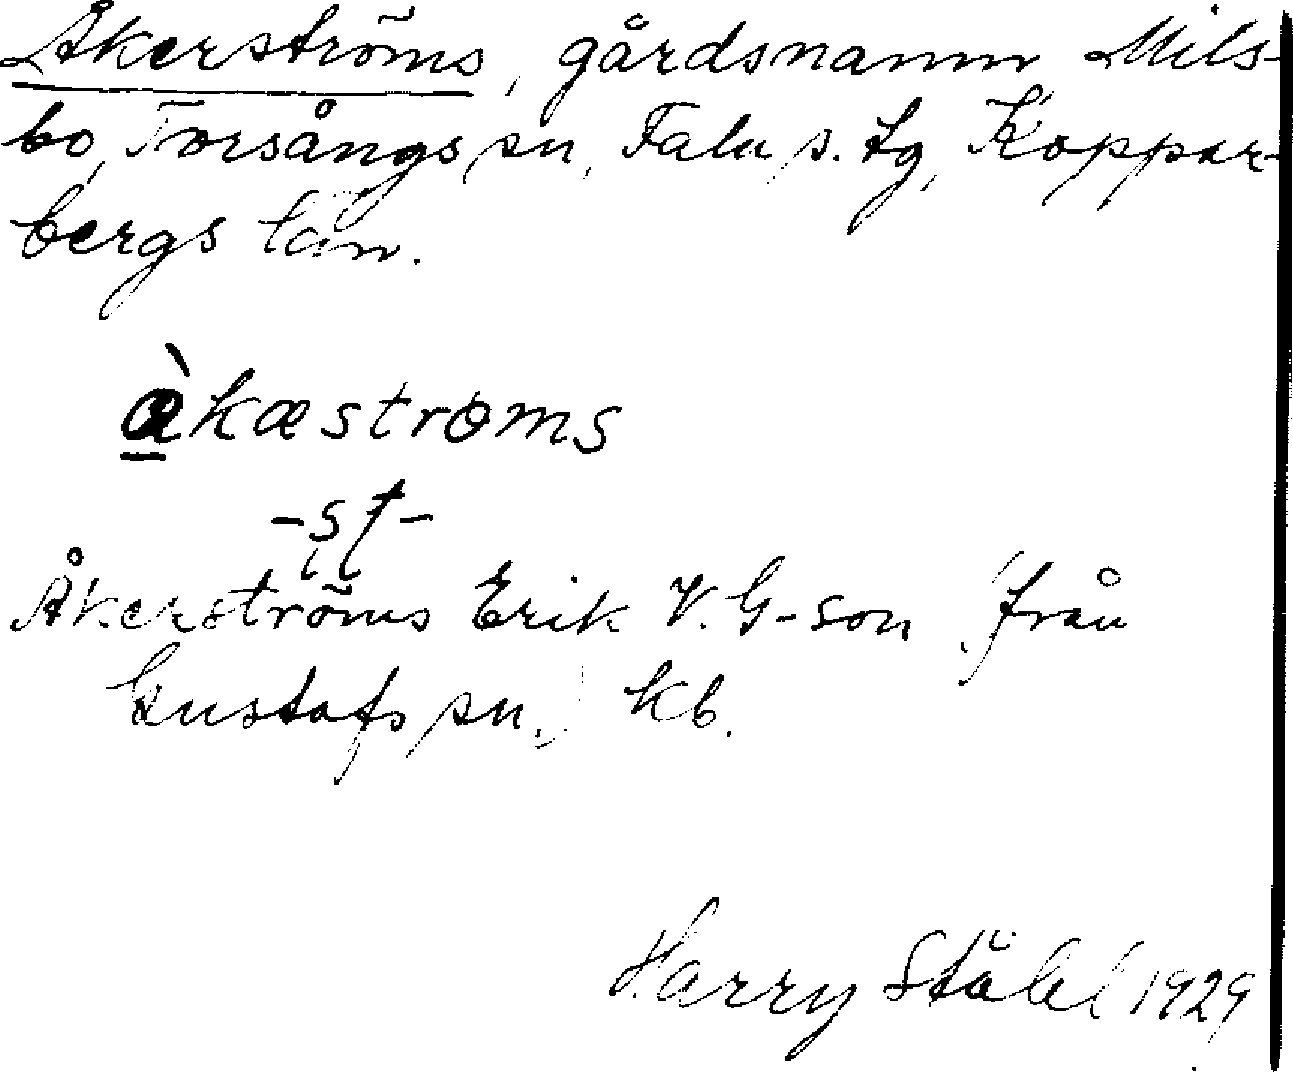 Åkerströms, gårdsnamn Mils-
bo, Torsångs sn, Falu s. tg, Koppar-
bergs län.
àkæstroms
-st-
Åkerströms Erik V. G-son (från
Gustafs sn.) kb.
Harry Ståhl 1929